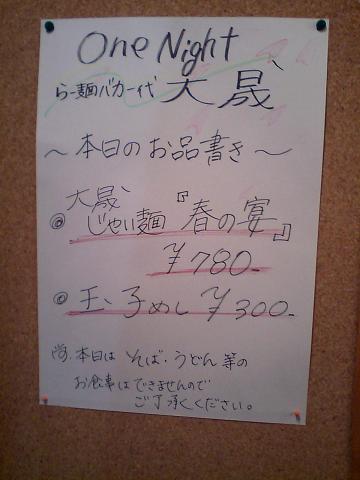 One Night
らー麺バカ一代 大晟
～本日のお品書き～
◎ 大晟
じゃい麺『春の宴』
¥780-
◎ 玉子めし ¥300-
尚、本日は そば・うどん 等の
お食事はできませんので
ご了承ください。